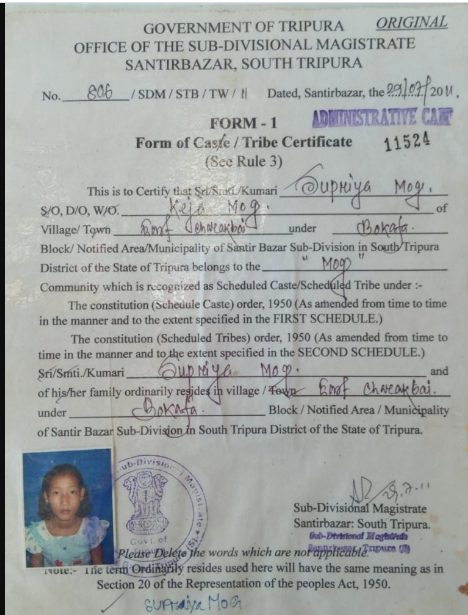 GOVERNMENT OF TRIPURA ORIGINAL
OFFICE OF THE SUB-DIVISIONAL MAGISTRATE
SANTIRBAZAR, SOUTH TRIPURA
No. 806 / SDM / STB / TW / 11 Dated, Santirbazar, the 29/07/2011.
ADMINISTRATIVE CAMP
FORM - 1
11524
Form of Caste / Tribe Certificate
(See Rule 3)
This is to Certify that Sri/Smti./Kumari Supriya Mog.
S/O, D/O, W/O. Keja Mog. of
Village/ Town East Charakbai under Bokafa.
Block/ Notified Area/Municipality of Santir Bazar Sub-Division in South Tripura
District of the State of Tripura belongs to the " Mog "
Community which is recognized as Scheduled Caste/Scheduled Tribe under :-
The constitution (Schedule Caste) order, 1950 (As amended from time to time
in the manner and to the extent specified in the FIRST SCHEDULE.)
The constitution (Scheduled Tribes) order, 1950 (As amended from time to
time in the manner and to the extent specified in the SECOND SCHEDULE.)
Sri/Smti./Kumari Supriya Mog. and
of his/her family ordinarily resides in village / Town East Charakbai.
under Bokafa. Block / Notified Area / Municipality
of Santir Bazar Sub-Division in South Tripura District of the State of Tripura.
Sub-Divisional Magistrate
Govt. of
Sub-Divisional Magistrate
Santirbazar: South Tripura.
Sub-Divisional Magistrate
Please Delete the words which are not applicable.
Note:- The term Ordinarily resides used here will have the same meaning as in
Section 20 of the Representation of the peoples Act, 1950.
SUPRIYA MOG